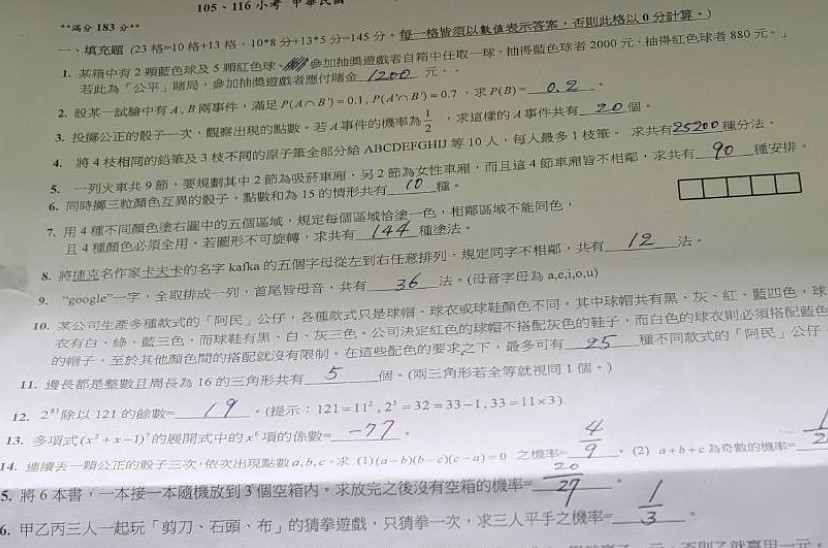 105、116 小考
**滿分 183 分**
一、填充題 (23 格=10 格+13 格，10*8 分+13*5 分=145 分。每一格皆須以數值表示答案，否則此格以 0 分計算。)
1. 某箱中有 2 顆藍色球及 5 顆紅色球。參加抽獎遊戲者自箱中任取一球，抽得藍色球者 2000 元、抽得紅色球者 880 元。」
若此為「公平」賭局，參加抽獎遊戲者應付賭金 1200 元。
2. 設某一試驗中有 A , B 兩事件，滿足 P(A∩B')=0.1, P(A'∩B')=0.7，求 P(B)= 0.2 。
3. 投擲公正的骰子一次，觀察出現的點數。若 A 事件的機率為 1/2 ，求這樣的 A 事件共有 20 個。
4. 將 4 枝相同的鉛筆及 3 枝不同的原子筆全部分給 ABCDEFGHIJ 等 10 人，每人最多 1 枝筆。 求共有 25200 種分法。
5. 一列火車共 9 節，要規劃其中 2 節為吸菸車廂，另 2 節為女性車廂，而且這 4 節車廂皆不相鄰，求共有 90 種安排。
6. 同時擲三粒顏色互異的骰子，點數和為 15 的情形共有 10 種。
7. 用 4 種不同顏色塗右圖中的五個區域，規定每個區域恰塗一色，相鄰區域不能同色，
且 4 種顏色必須全用。若圖形不可旋轉，求共有 144 種塗法。
8. 將捷克名作家卡夫卡的名字 kafka 的五個字母從左到右任意排列，規定同字不相鄰，共有 12 法。
9. "google"一字，全取排成一列，首尾皆母音，共有 36 法。(母音字母為 a,e,i,o,u)
10. 某公司生產多種款式的「阿民」公仔，各種款式只是球帽、球衣或球鞋顏色不同。其中球帽共有黑、灰、紅、藍四色，球
衣有白、綠、藍三色，而球鞋有黑、白、灰三色。公司決定紅色的球帽不搭配灰色的鞋子，而白色的球衣則必須搭配藍色
的帽子，至於其他顏色間的搭配就沒有限制。在這些配色的要求之下，最多可有 25 種不同款式的「阿民」公仔
11. 邊長都是整數且周長為 16 的三角形共有 5 個。(兩三角形若全等就視同 1 個。)
12. 2⁸³除以 121 的餘數= 19 。(提示：121=11², 2⁵=32=33−1, 33=11×3)
13. 多項式(x²+x−1)⁷的展開式中的 x⁶ 項的係數= -77 。
14. 連續丟一顆公正的骰子三次，依次出現點數 a, b, c，求 (1)(a−b)(b−c)(c−a)=0 之機率= 4/9 。 (2) a+b+c 為奇數的機率=
5. 將 6 本書，一本接一本隨機放到 3 個空箱內。求放完之後沒有空箱的機率= 20/27 。
6. 甲乙丙三人一起玩「剪刀、石頭、布」的猜拳遊戲，只猜拳一次，求三人平手之機率= 1/3 。